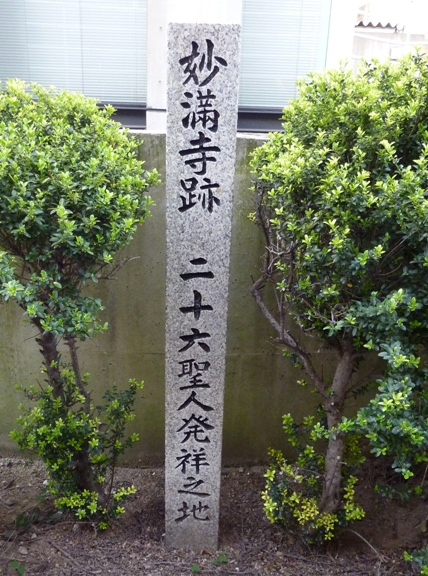 妙満寺跡 二十六聖人発祥之地